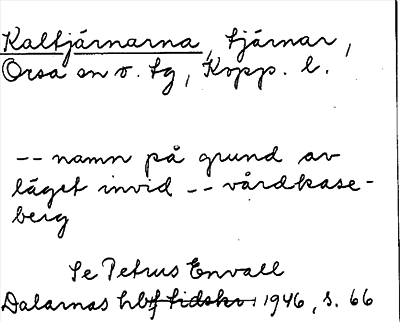 Kaltjärnarna, tjärnar,
Orsa sn o. tg, Kopp. l.
-- namn på grund av
läget invid -- vårdkase-
berg
Se Petrus Envall
Dalarnas hbf tidskr. 1946, s. 66